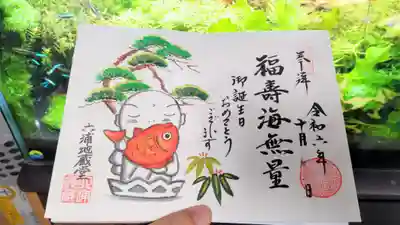 奉拝
令和六年
十月 日
福壽海無量
御誕生日
おめでとう
ございます
六浦地蔵堂